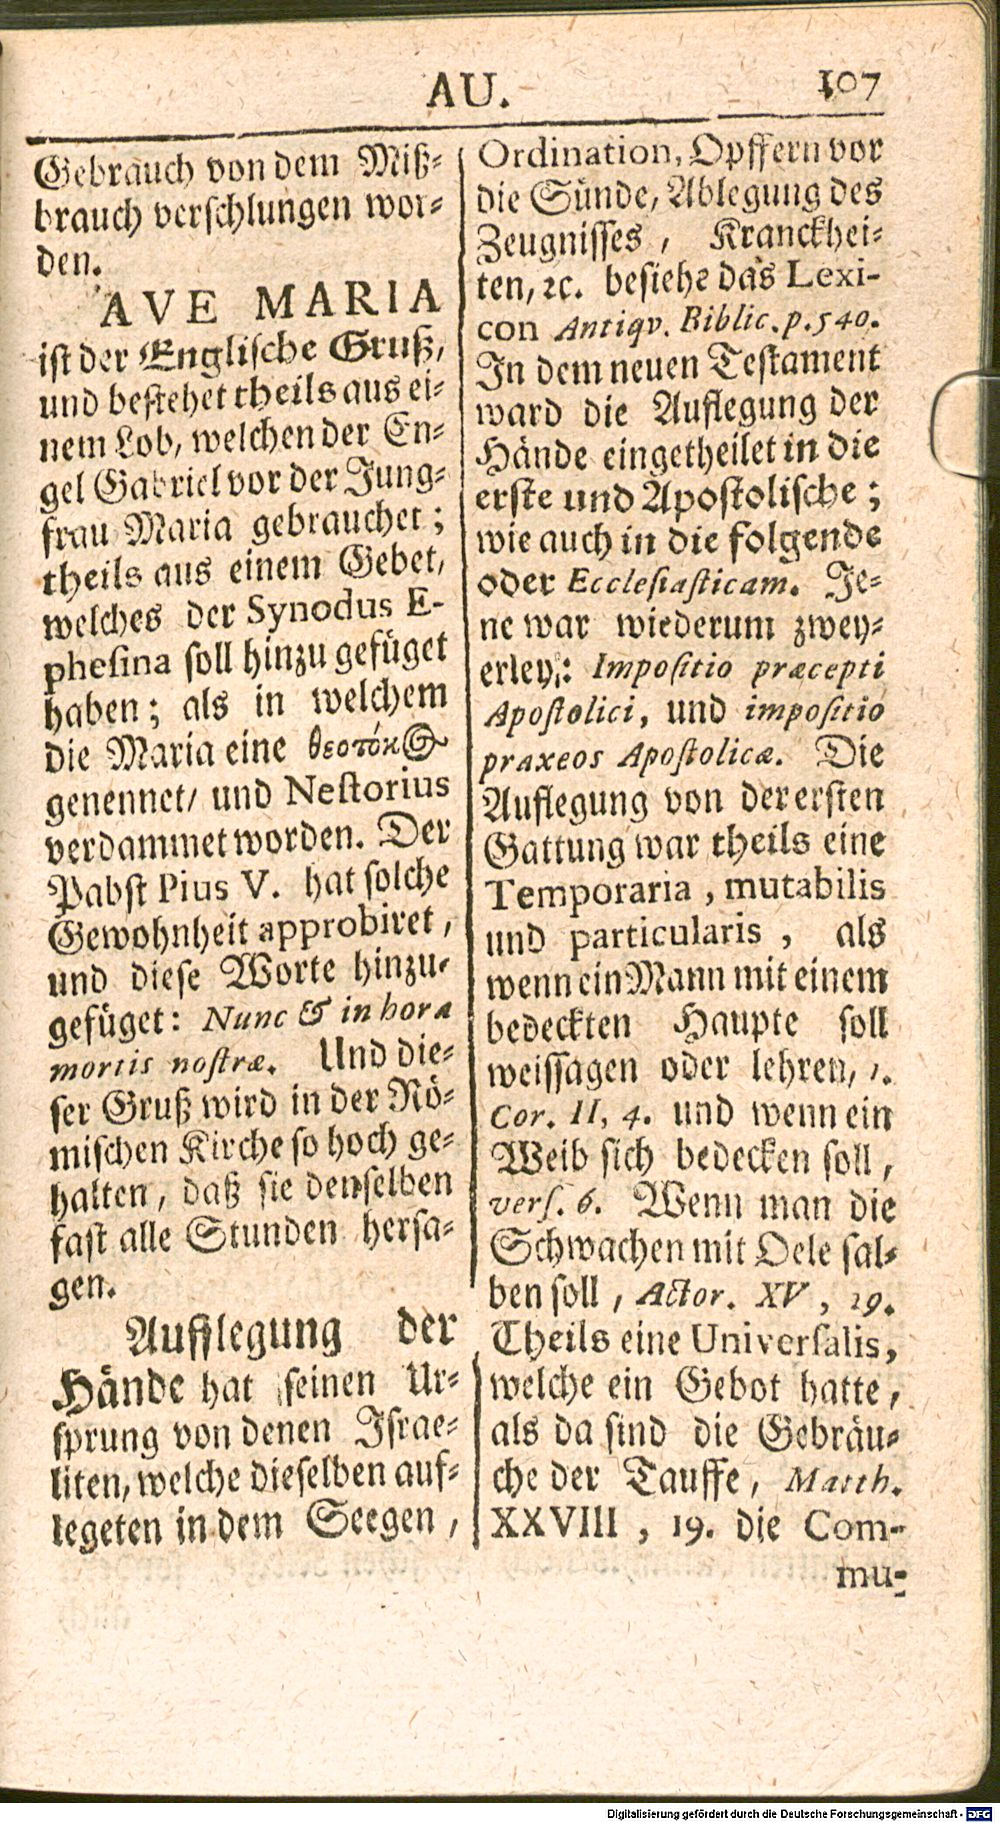 AU. 107
Gebrauch von dem Miß-
brauch verschlungen wor-
den.
AVE MARIA
ist der Englische Gruß,
und bestehet theils aus ei-
nem Lob, welchen der En-
gel Gabriel vor der Jung-
frau Maria gebrauchet;
theils aus einem Gebet,
welches der Synodus E-
phesina soll hinzu gefüget
haben; als in welchem
die Maria eine θεοτόκος
genennet/ und Nestorius
verdammet worden. Der
Pabst Pius V. hat solche
Gewohnheit approbiret,
und diese Worte hinzu-
gefüget: Nunc & in hora
mortis nostræ. Und die-
ser Gruß wird in der Rö-
mischen Kirche so hoch ge-
halten, daß sie denselben
fast alle Stunden hersa-
gen.
Aufflegung der
Hände hat seinen Ur-
sprung von denen Israe-
liten, welche dieselben auf-
legeten in dem Seegen,
Ordination, Opffern vor
die Sünde, Ablegung des
Zeugnisses, Kranckhei-
ten, ꝛc. besiehe das Lexi-
con Antiqv. Biblic. p. 540.
In dem neuen Testament
ward die Auflegung der
Hände eingetheilet in die
erste und Apostolische;
wie auch in die folgende
oder Ecclesiasticam. Je-
ne war wiederum zwey-
erley: Impositio præcepti
Apostolici, und impositio
praxeos Apostolicæ. Die
Auflegung von der ersten
Gattung war theils eine
Temporaria, mutabilis
und particularis, als
wenn ein Mann mit einem
bedeckten Haupte soll
weissagen oder lehren, 1.
Cor. II, 4. und wenn ein
Weib sich bedecken soll,
vers. 6. Wenn man die
Schwachen mit Oele sal-
ben soll, Actor. XV, 19.
Theils eine Universalis,
welche ein Gebot hatte,
als da sind die Gebräu-
che der Tauffe, Matth.
XXVIII, 19. die Com-
mu-
Digitalisierung gefördert durch die Deutsche Forschungsgemeinschaft - DFG